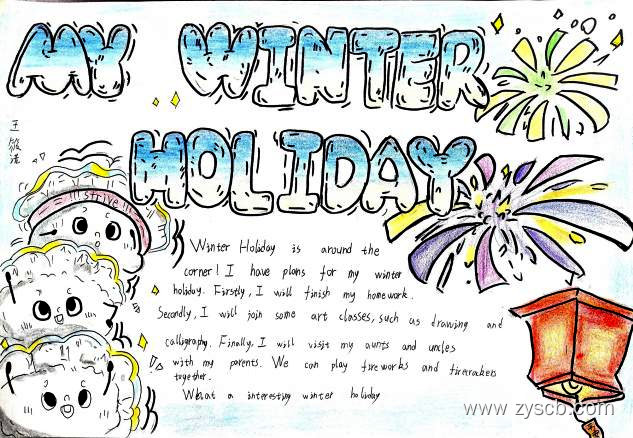 MY WINTER
HOLIDAY
strive
Winter Holiday is around the
corner! I have plans for my winter
holiday. Firstly, I will finish my homework.
Secondly, I will join some art classes, such as drawing and
calligraphy. Finally, I will visit my aunts and uncles
with my parents. We can play fireworks and firecrackers
together.
What a interesting winter holiday
www.zyscb.com